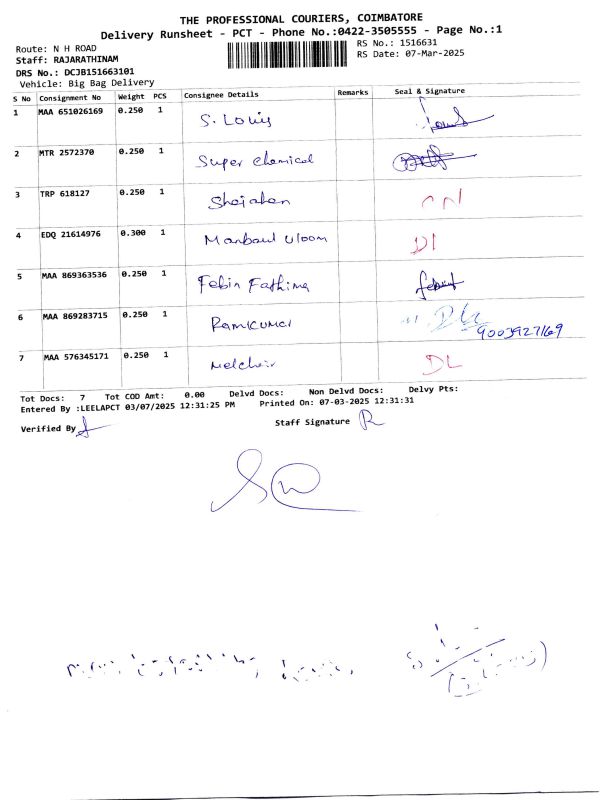 THE PROFESSIONAL COURIERS, COIMBATORE
Delivery Runsheet - PCT - Phone No.:0422-3505555 - Page No.:1
Route: N H ROAD
RS No.: 1516631
Staff: RAJARATHINAM
RS Date: 07-Mar-2025
DRS No.: DCJB151663101
Vehicle: Big Bag Delivery
S No Consignment No Weight PCS Consignee Details Remarks Seal & Signature
1 MAA 651026169 0.250 1 S. Louis
2 MTR 2572370 0.250 1 Super chemical
3 TRP 618127 0.250 1 Shajahan
4 EDQ 21614976 0.300 1 Manbaul Uloom DL
5 MAA 869363536 0.250 1 Febin Fathima
6 MAA 869283715 0.250 1 Ramkumar 9003927169
7 MAA 576345171 0.250 1 Melchoir DL
Tot Docs: 7 Tot COD Amt: 0.00 Delvd Docs: Non Delvd Docs: Delvy Pts:
Entered By :LEELAPCT 03/07/2025 12:31:25 PM Printed On: 07-03-2025 12:31:31
Verified By Staff Signature R